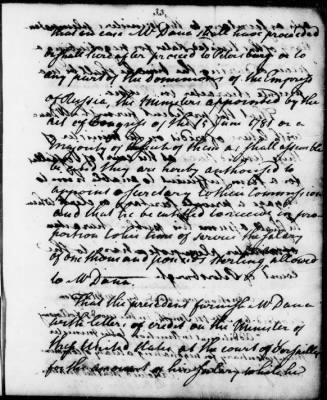 That in case Mr Dana shall have proceeded
or shall hereafter proceed to Petersburg or to
any part of the dominions of the Empress
of Russia, the ministers appointed by the
Act of Congress of the 15 June 1781 or a
majority of such of them as shall assemble
be & they are hereby authorised to
appoint a secretary to their Commission
and that he be entitled to receive in pro
portion to his time of service the salary
of one thousand pounds sterling allowed
to Mr Dana.
That the president furnish Mr Dana
with letters of credit on the Minister of
these United States at the court of Versailles
for the amount of his salary